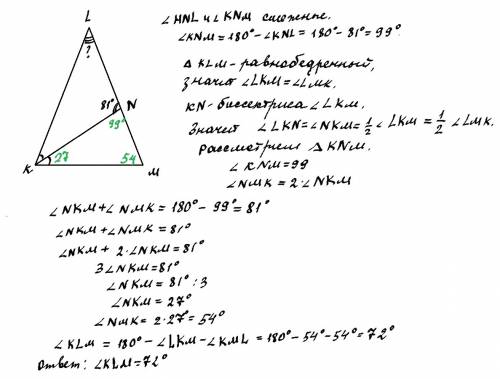 L
?
81°
N
99°
27
54
K
M
∠HNL и ∠KNM смежные.
∠KNM = 180° - ∠KNL = 180° - 81° = 99°
△KLM - равнобедренный,
значит ∠LKM = ∠LMK.
KN - биссектриса ∠LKM.
Значит ∠LKN = ∠NKM = 1/2 ∠LKM = 1/2 ∠LMK.
Рассмотрим △KNM.
∠KNM = 99
∠NMK = 2·∠NKM
∠NKM + ∠NMK = 180° - 99° = 81°
∠NKM + ∠NMK = 81°
∠NKM + 2·∠NKM = 81°
3∠NKM = 81°
∠NKM = 81° : 3
∠NKM = 27°
∠NMK = 2·27° = 54°
∠KLM = 180° - ∠LKM - ∠KML = 180° - 54° - 54° = 72°
Ответ: ∠KLM = 72°